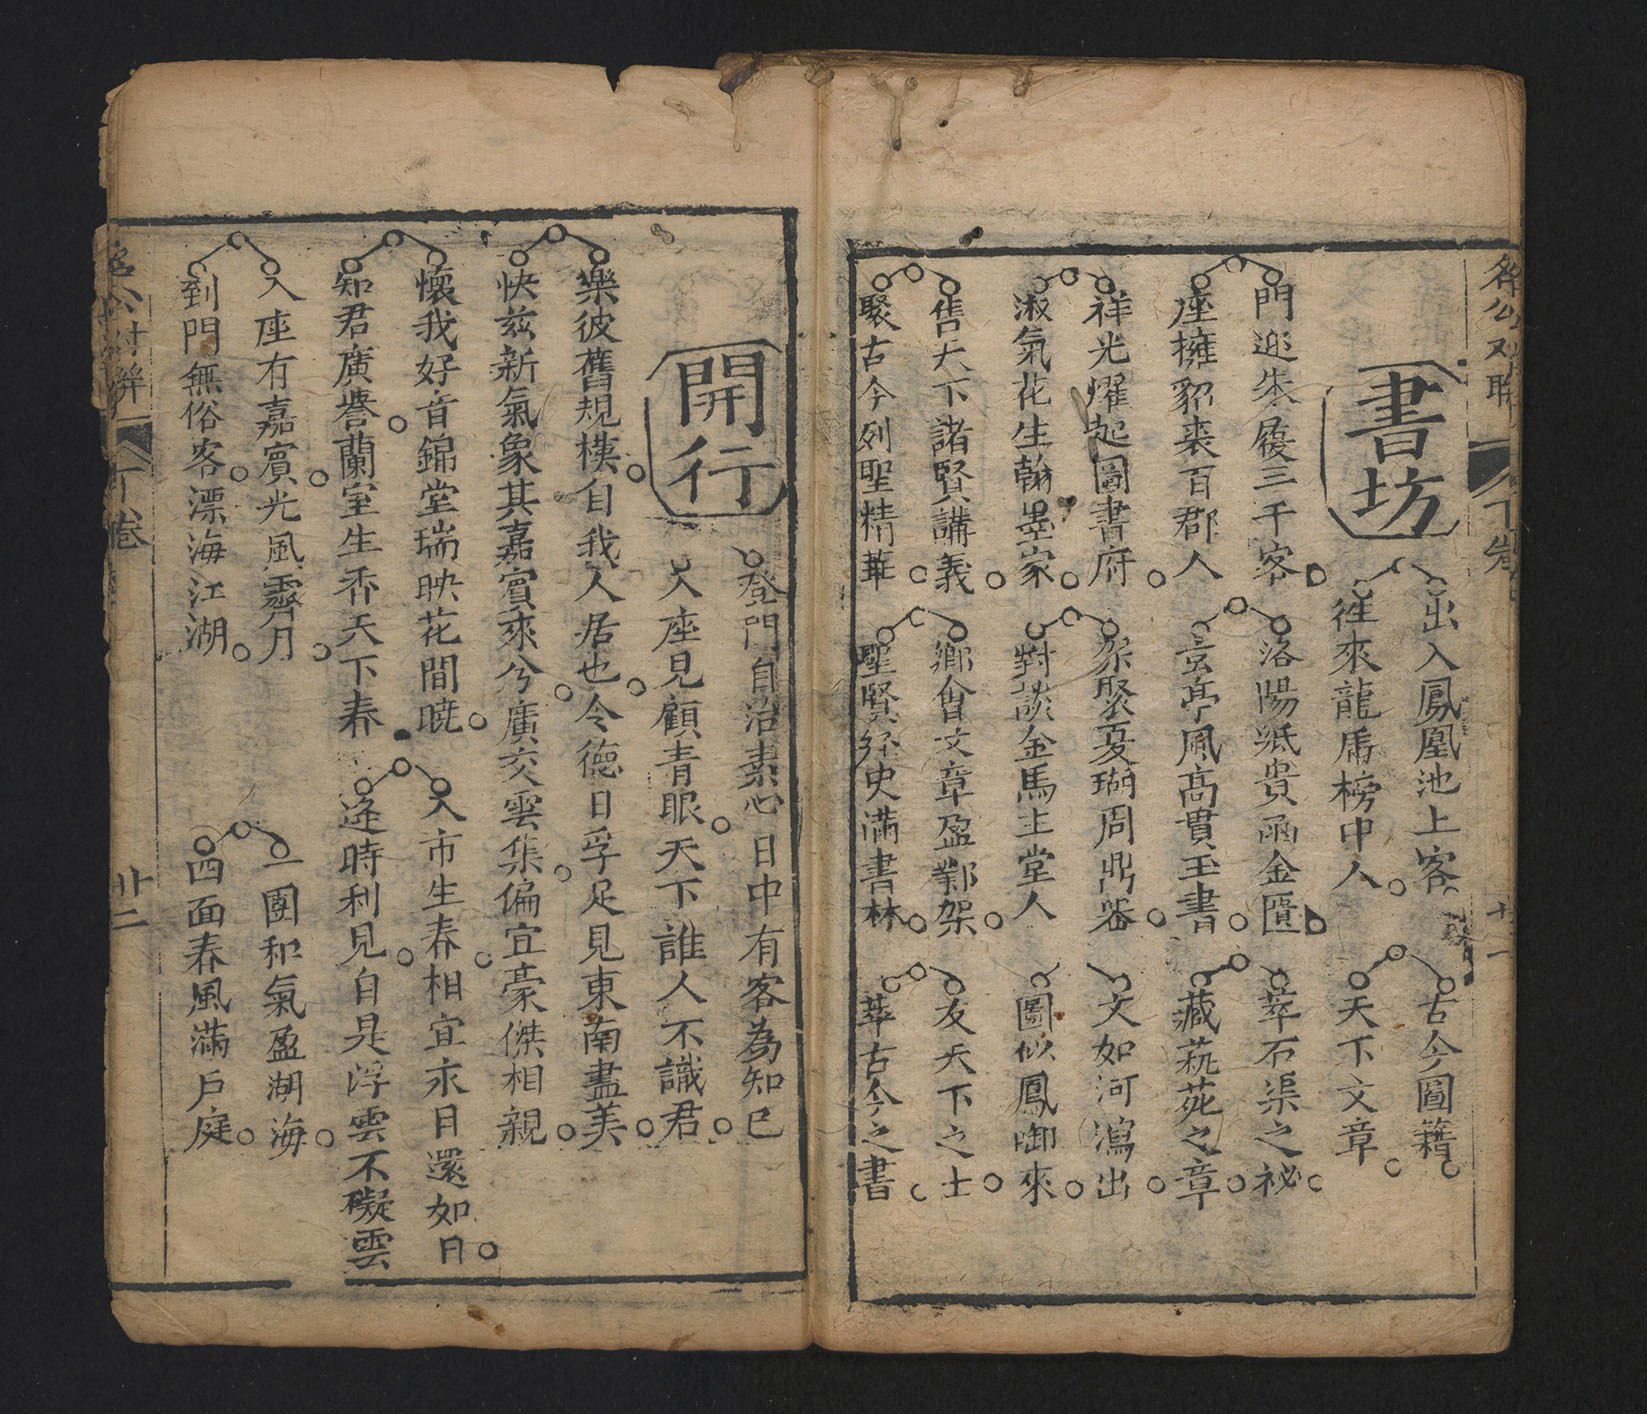 書坊
出入鳳凰池上客 古今圖籍
往來龍虎榜中人 天下文章
門迎朱履三千客 洛陽紙貴函金匱 萃石渠之祕
座擁貂裘百郡人 玄亭風高貫玉書 藏萟苑之章
祥光耀起圖書府 聚夏瑚周鼎器 文如河瀉出
淑氣花生翰墨家 對談金馬玉堂人 圖似鳳啣來
售天下諸賢講義 鄉會文章盈鄴架 友天下之士
聚古今列聖精華 聖賢経史滿書林 萃古今之書
下卷
開行
登門自洽素心日中有客為知己
入座見顧青眼天下誰人不識君
樂彼舊規模自我人居也令德日孚足見東南盡美
快兹新氣象其嘉賓來兮廣交雲集偏宜豪傑相親
懷我好音錦堂瑞映花間暁 入市生春相宜永日還如日
知君廣譽蘭室生香天下春 逢時利見自是浮雲不礙雲
入座有嘉賓光風霽月 一團和氣盈湖海
到門無俗客漂海江湖 四面春風滿戶庭
下卷
廿二